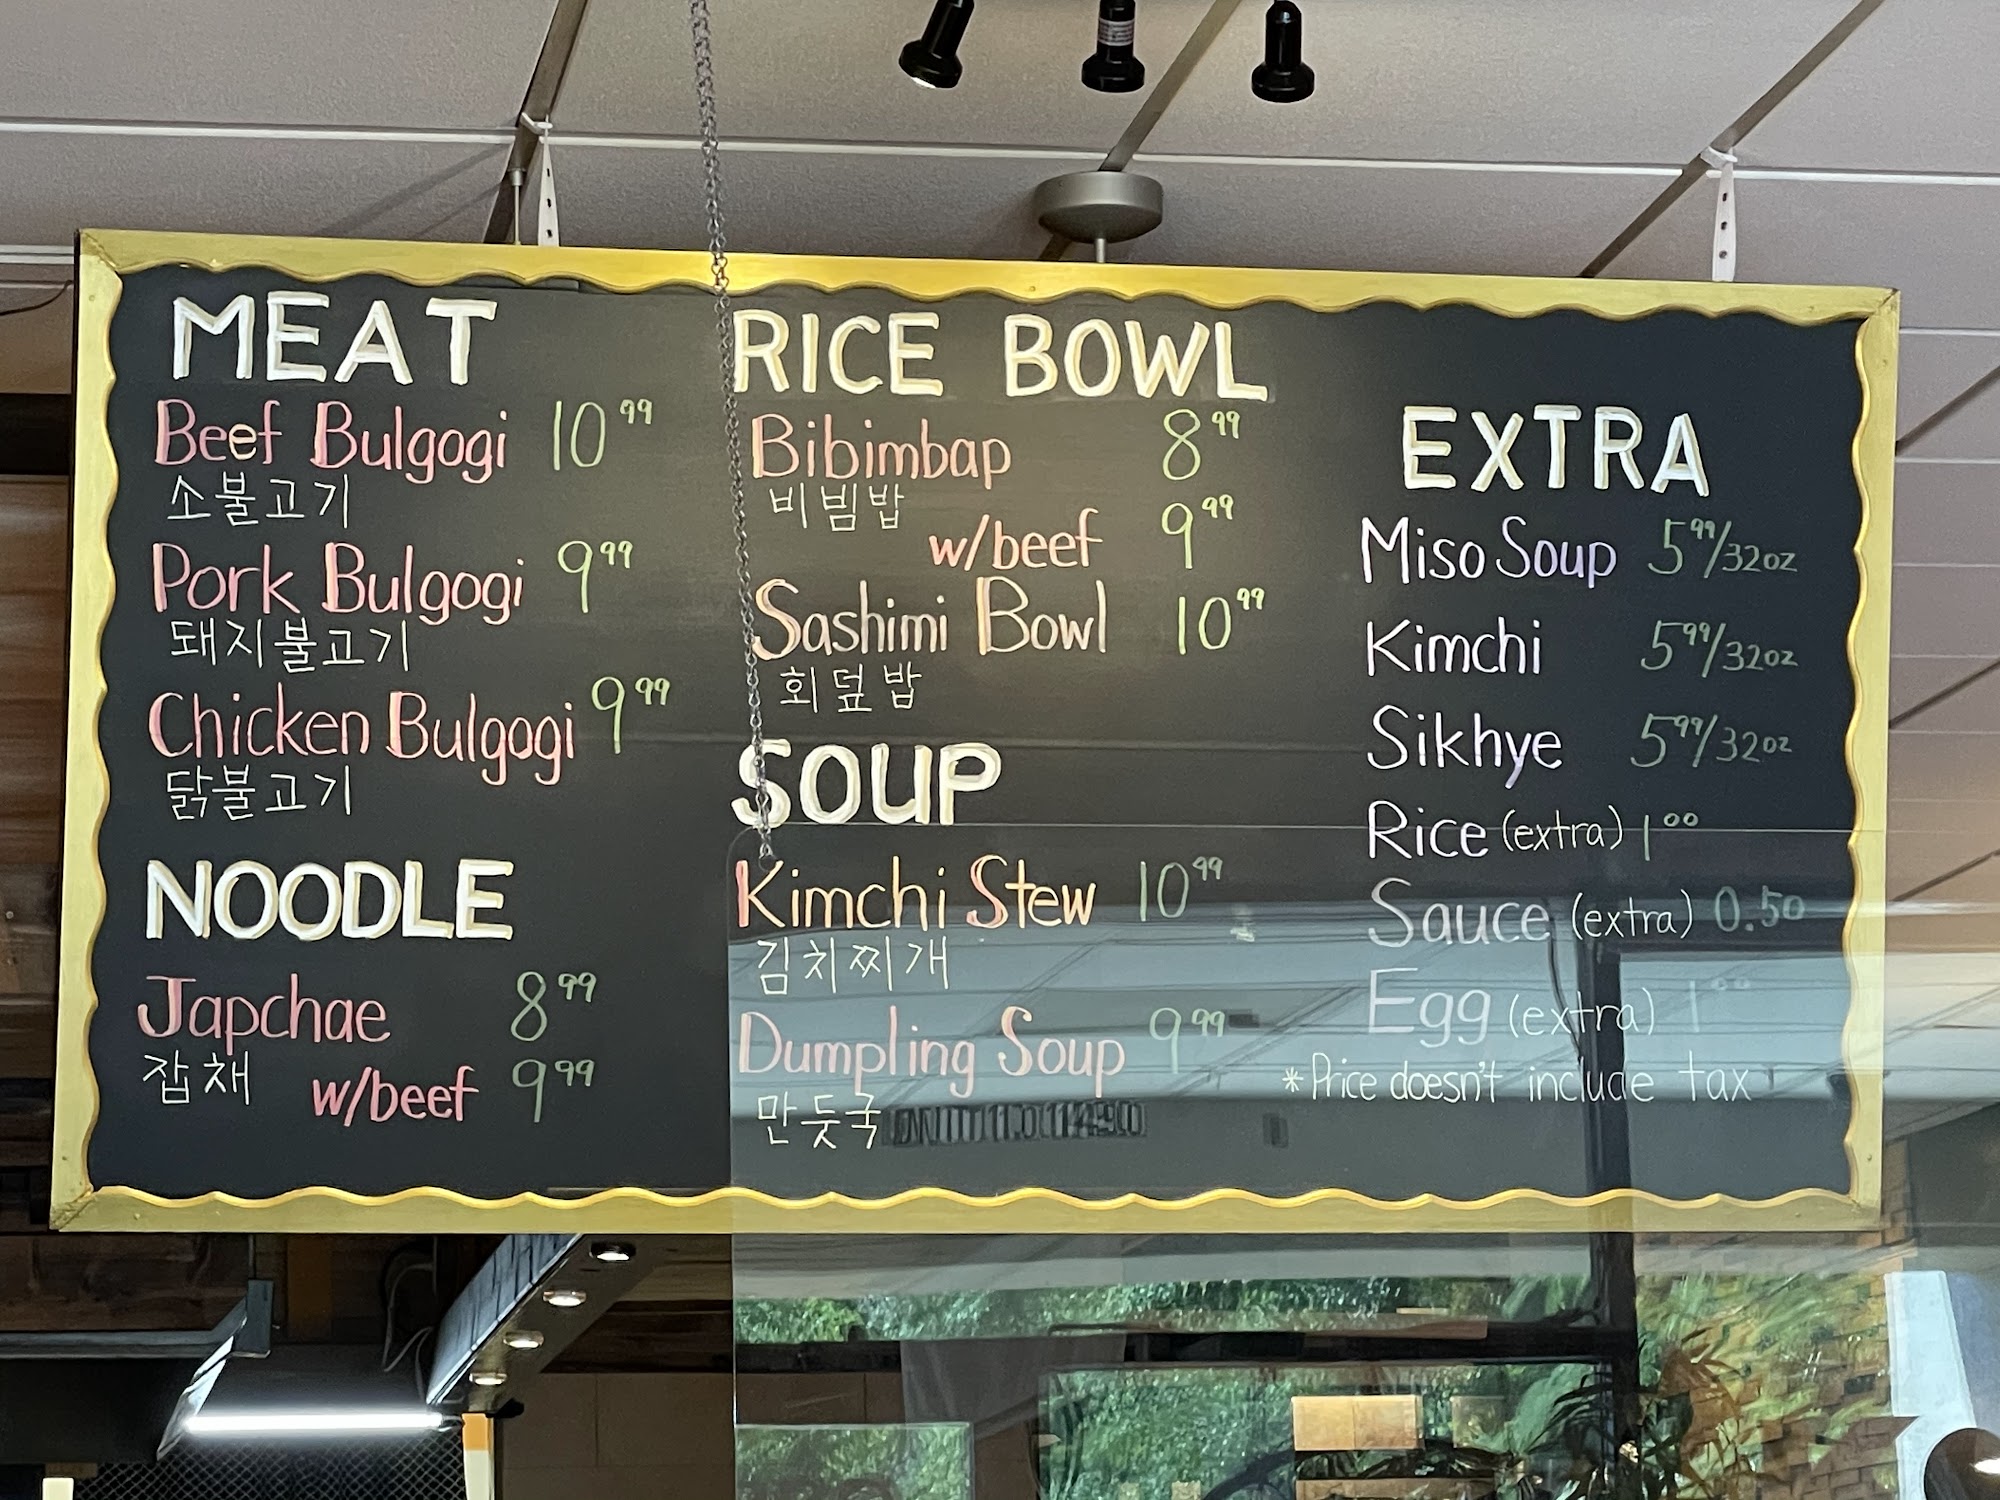 MEAT
Beef Bulgogi 10.99
소불고기
Pork Bulgogi 9.99
돼지불고기
Chicken Bulgogi 9.99
닭불고기
NOODLE
Japchae 8.99
잡채 w/beef 9.99
RICE BOWL
Bibimbap 8.99
비빔밥
w/beef 9.99
Sashimi Bowl 10.99
회덮밥
SOUP
Kimchi Stew 10.99
김치찌개
Dumpling Soup 9.99
만둣국
EXTRA
Miso Soup 5.99/32oz
Kimchi 5.99/32oz
Sikhye 5.99/32oz
Rice (extra) 1.00
Sauce (extra) 0.50
Egg (extra) 1.00
*Price doesn't include tax